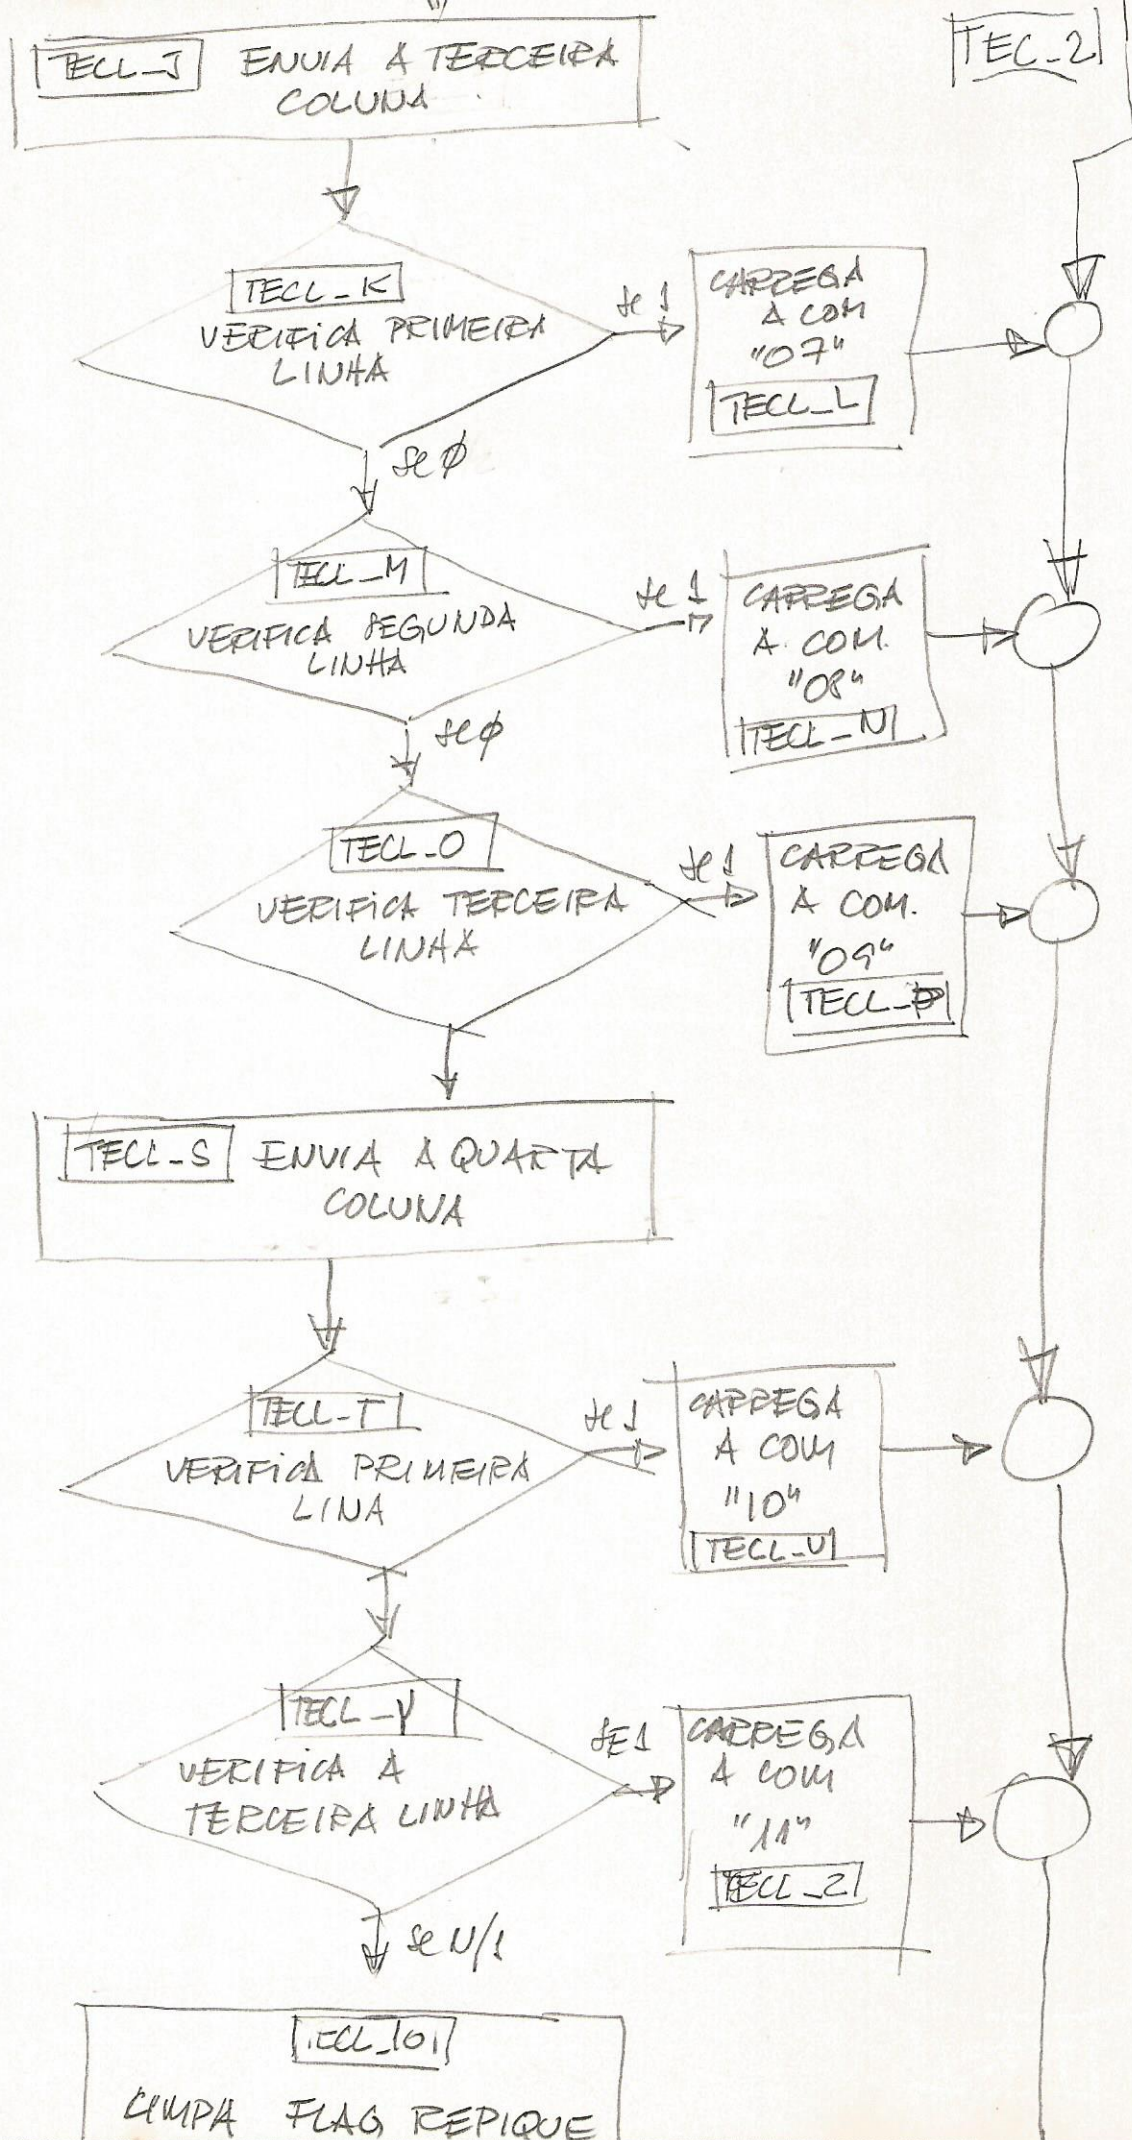 TECL_J ENVIA A TERCEIRA
COLUNA
TEC_2
TECL_K
VERIFICA PRIMEIRA
LINHA
se 1
CARREGA
A COM
"07"
TECL_L
se Ø
TECL_M
VERIFICA SEGUNDA
LINHA
se 1
CARREGA
A. COM.
"08"
TECL_N
se Ø
TECL_O
VERIFICA TERCEIRA
LINHA
se 1
CARREGA
A COM.
"09"
TECL_P
TECL_S ENVIA A QUARTA
COLUNA
TECL_T
VERIFICA PRIMEIRA
LINA
se 1
CARREGA
A COM
"10"
TECL_U
TECL_Y
VERIFICA A
TERCEIRA LINHA
SE 1
CARREGA
A COM
"11"
TECL_Z
se N/1
TECL_101
LIMPA FLAG REPIQUE